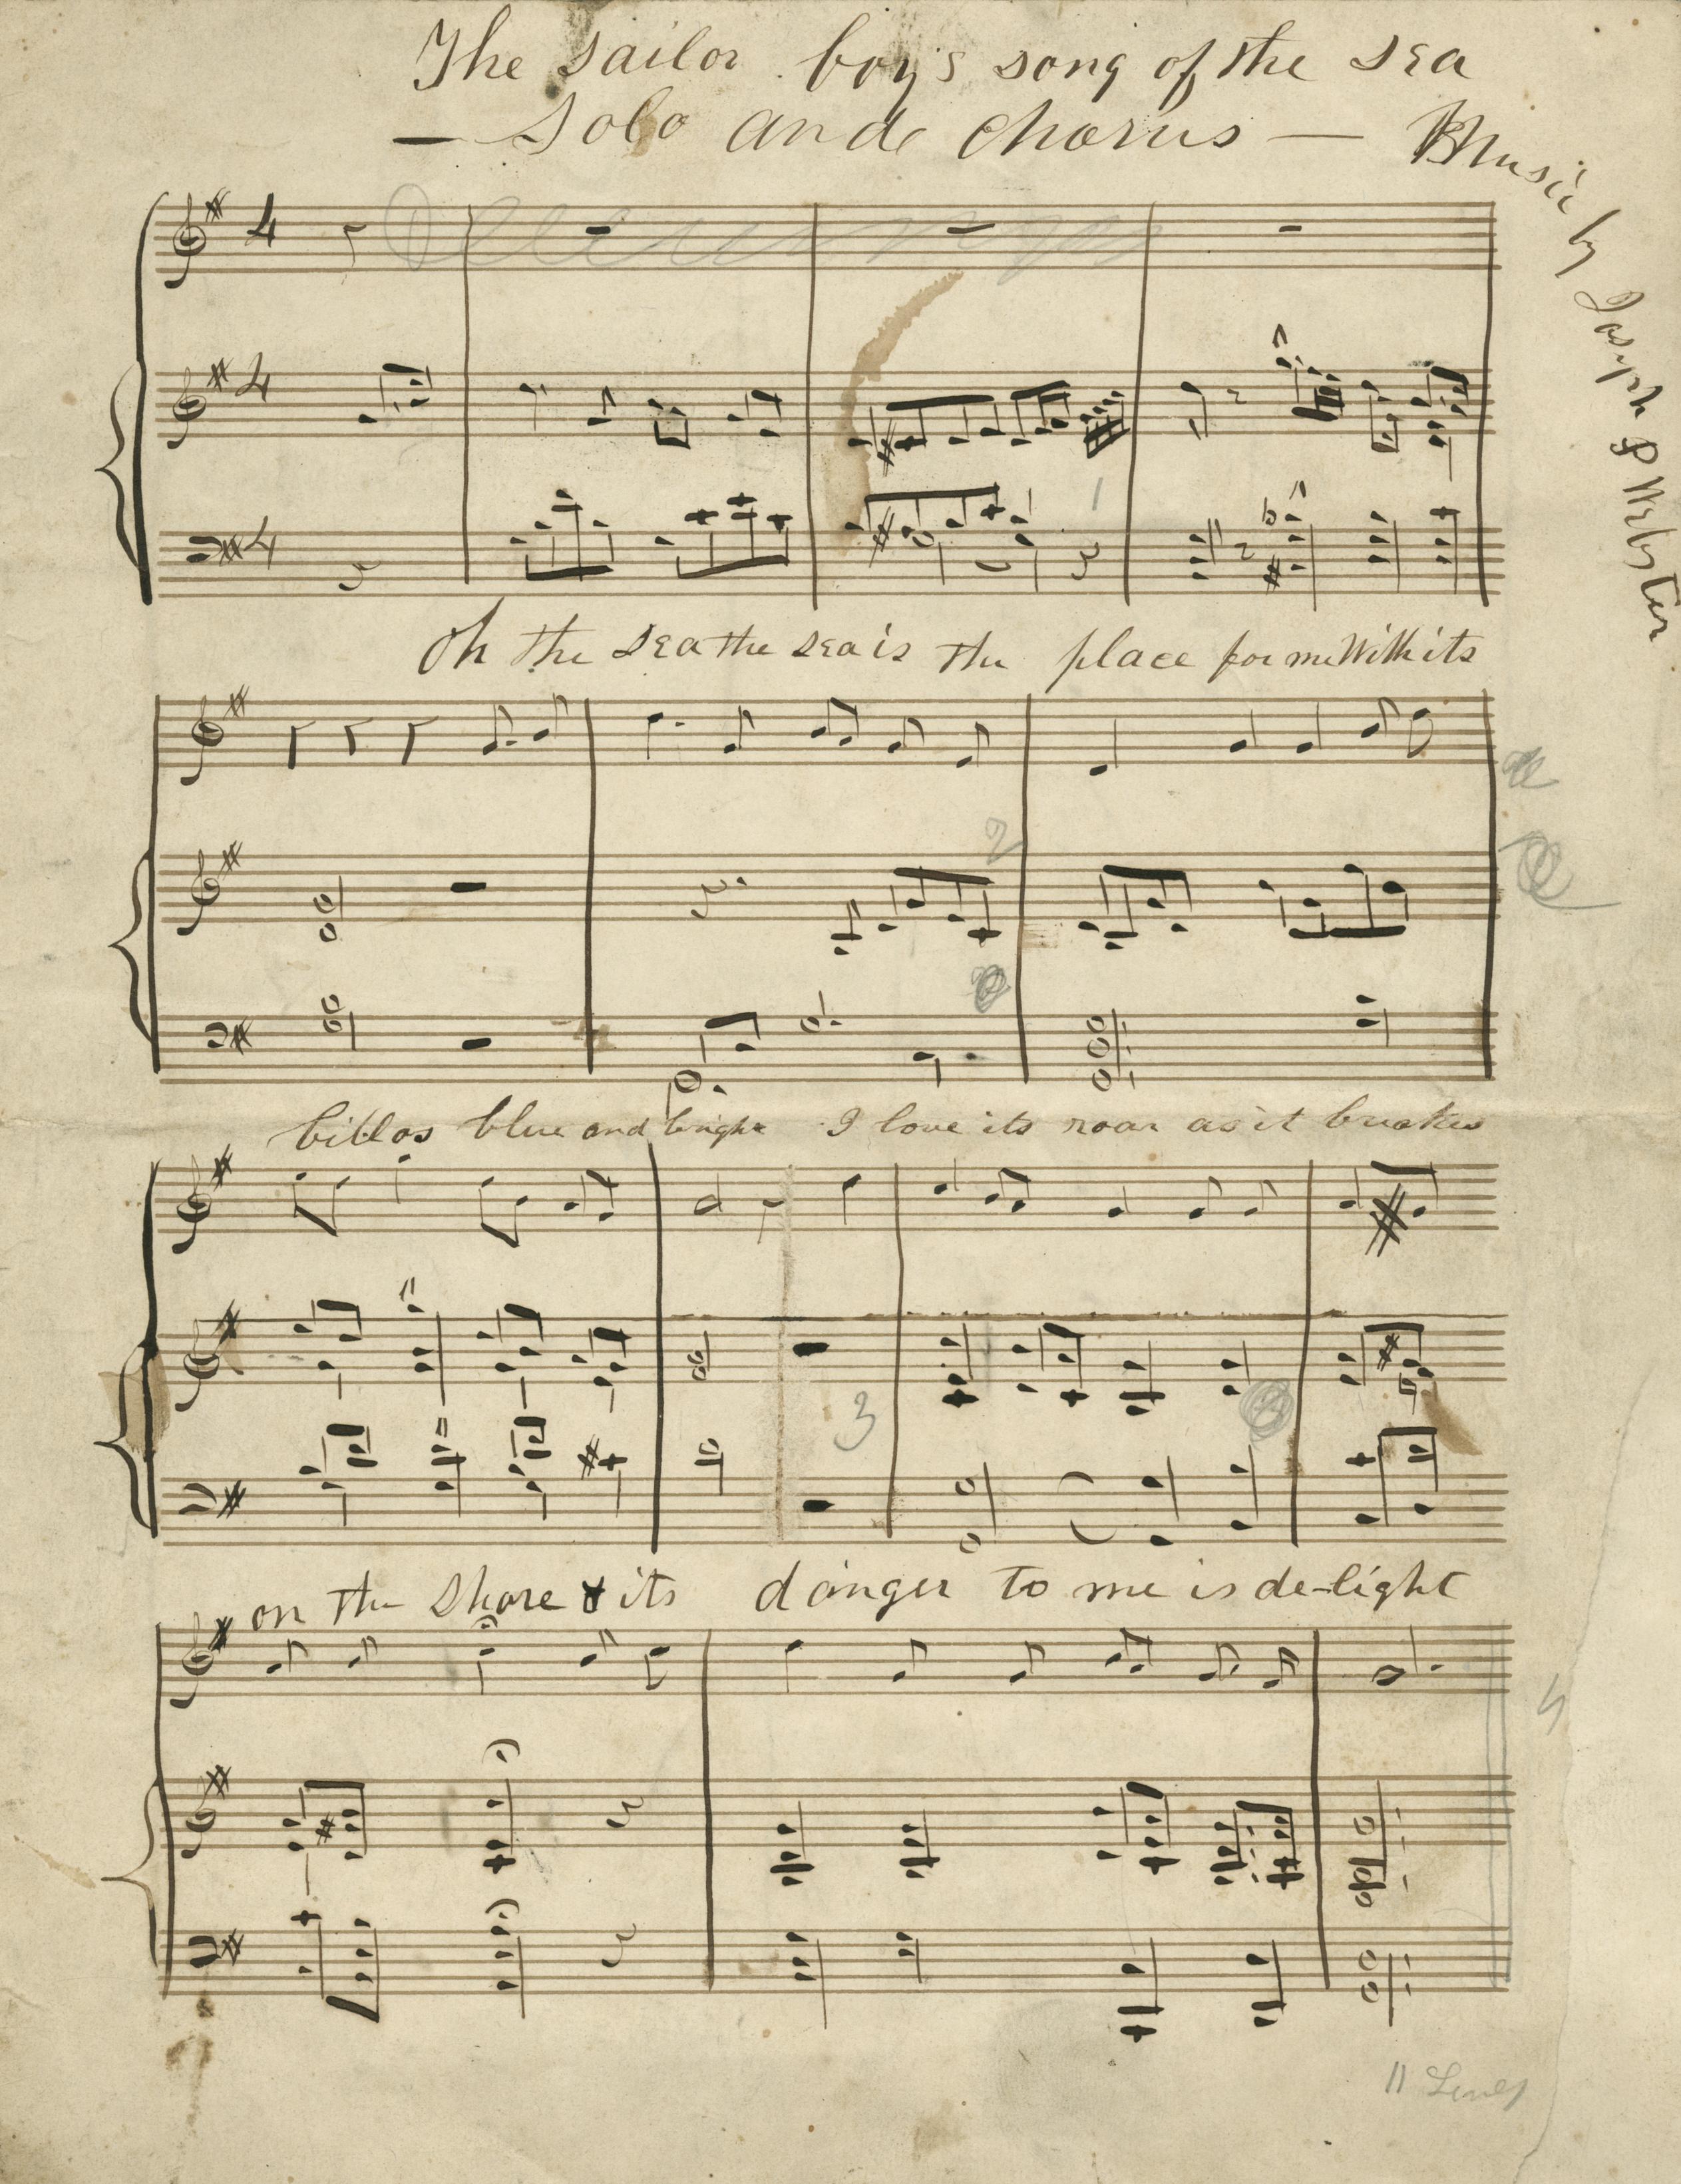 The sailor boy's song of the sea
— Solo and chorus —
Music by Joseph P Webster
4
4
4
1
Oh the sea the sea is the place for me With its
2
billos blue and bright I love its roar as it breakes
3
on the Shore & its danger to me is de-light
11 Lines